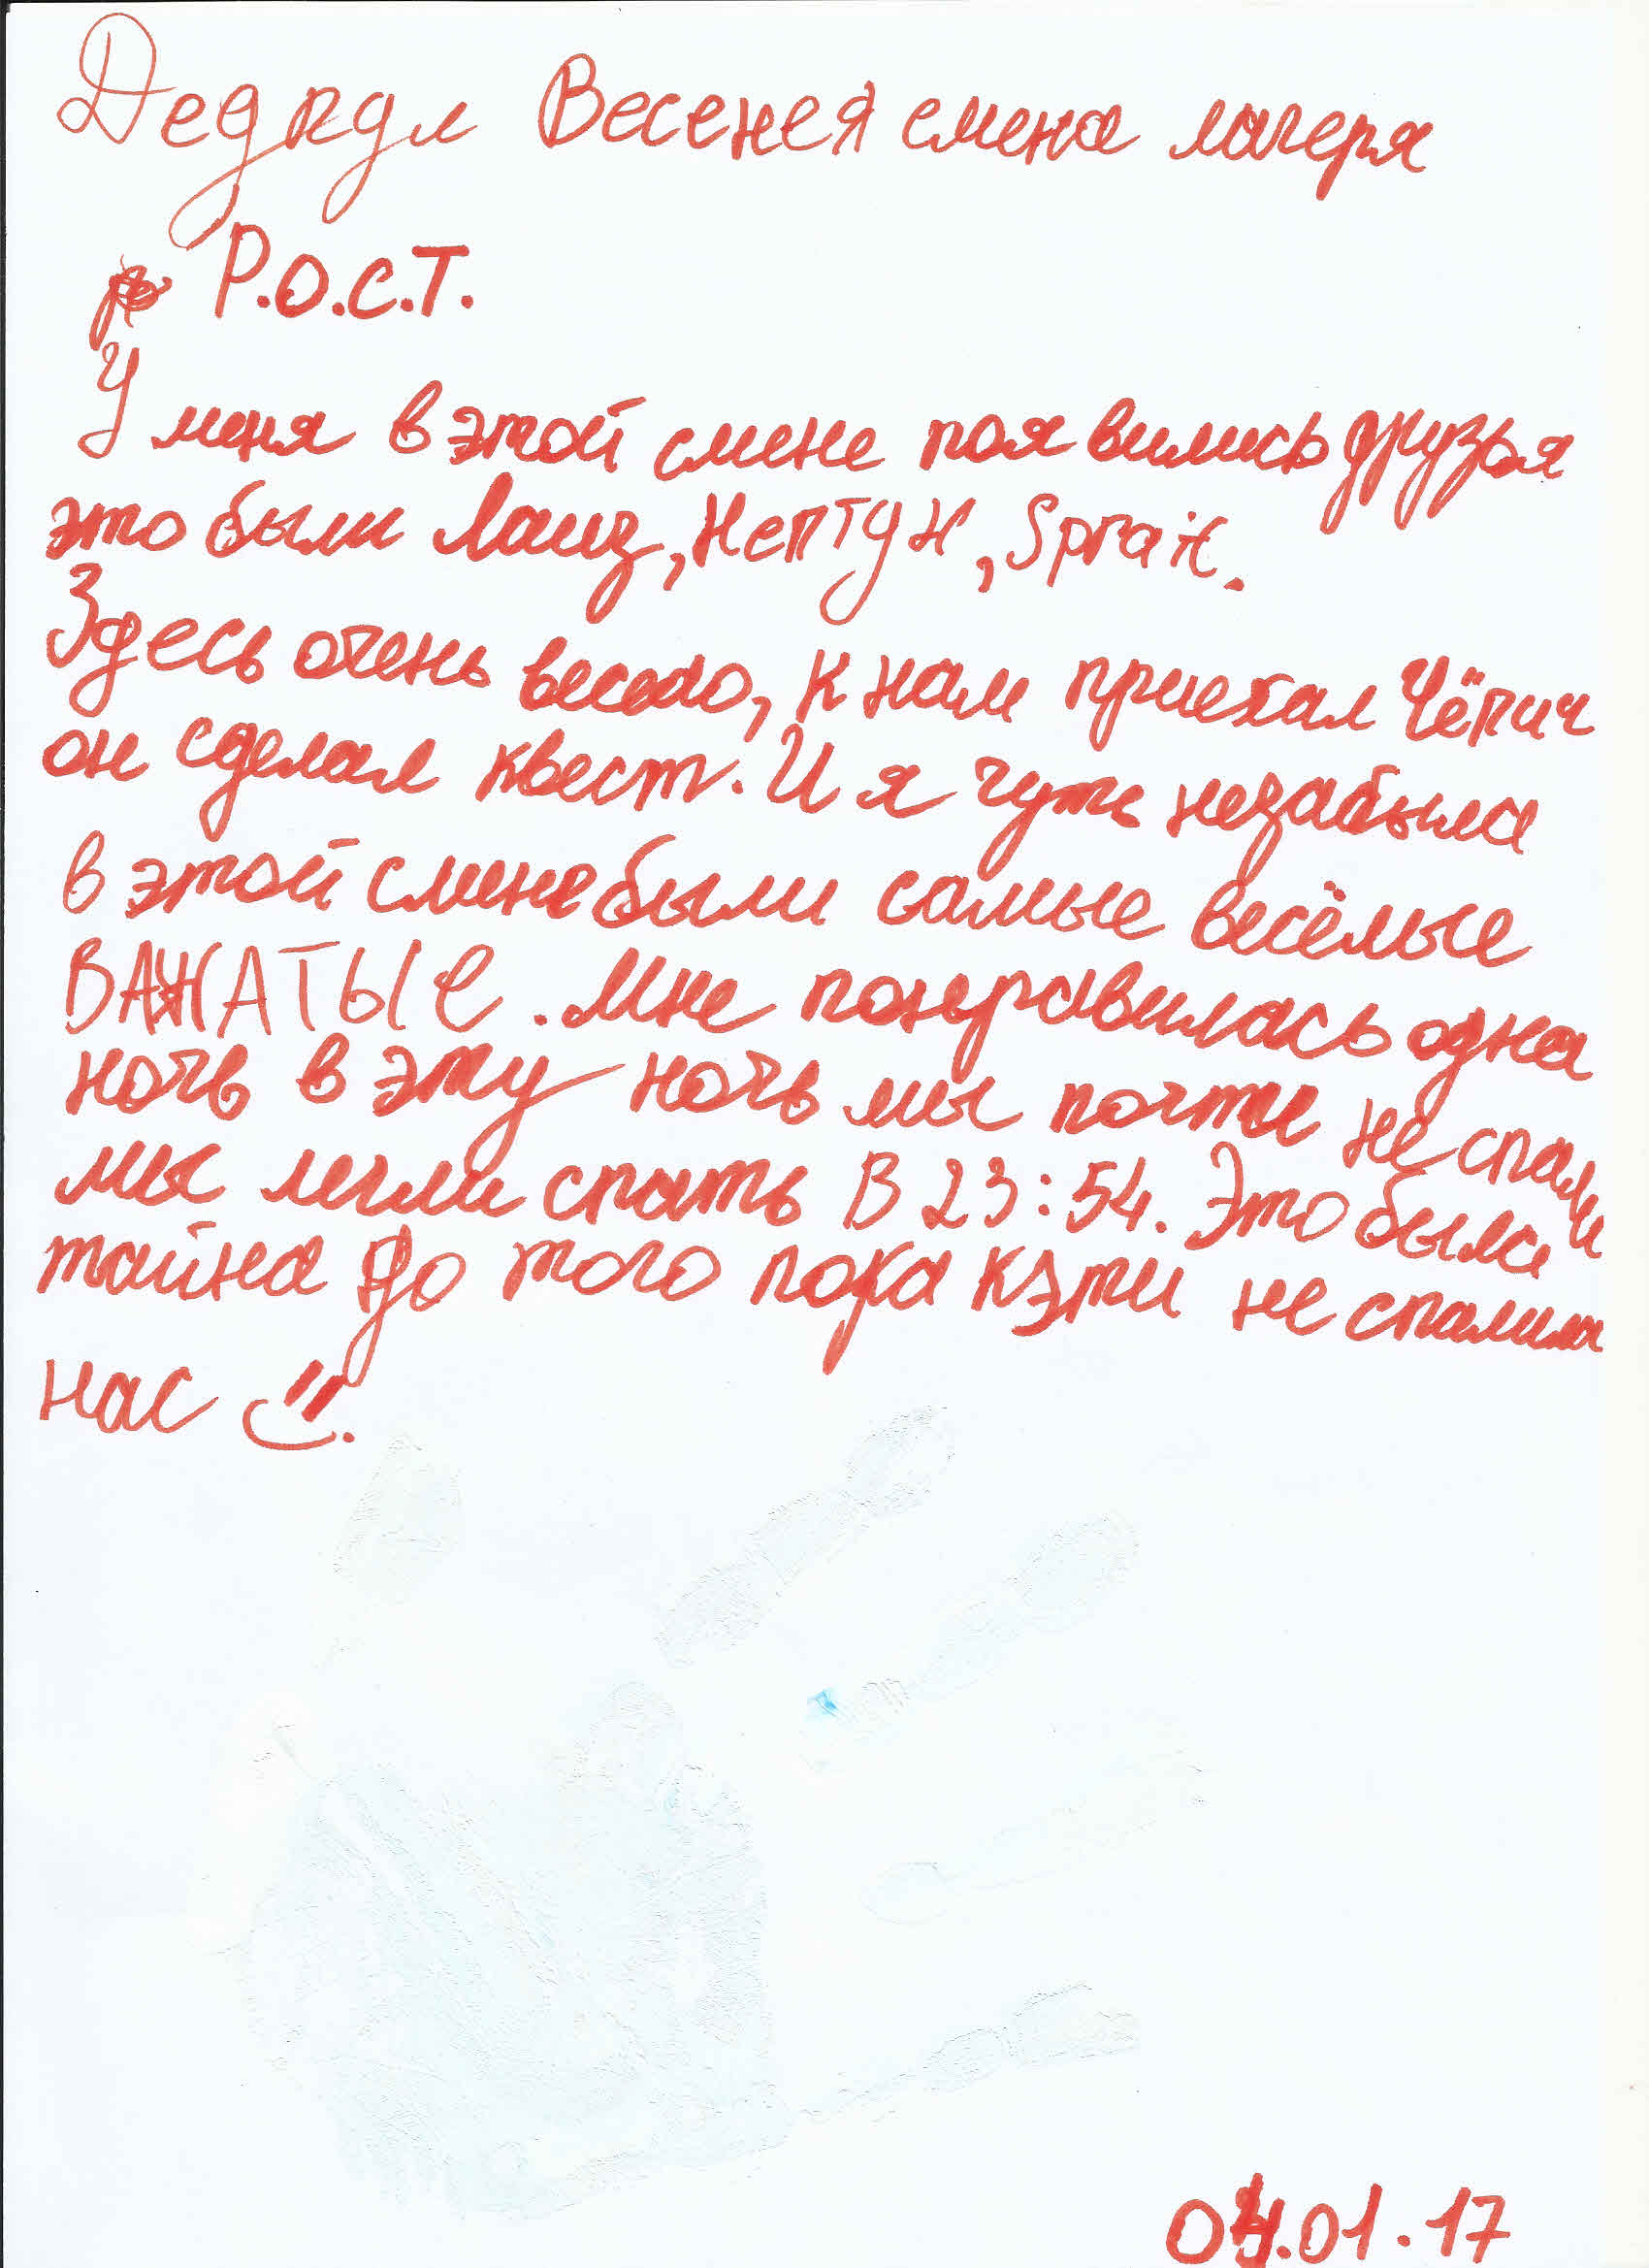 Дедядл Весенея смена лагеря
Р.О.С.Т.
У меня в этой смене поя вились друзья
это были Лаиз, Нептун, Sprait.
Здесь очень весело, к нам приехал Чёпич
он сделал квест. И я чуть незабыла
в этой смене были самые весёлые
ВАЖАТЫЕ. Мне понравилась одна
ночь в эту ночь мы почти не спали
мы легли спать В 23:54. Это была
тайна до того пока кэти не спалила
нас
04.01.17